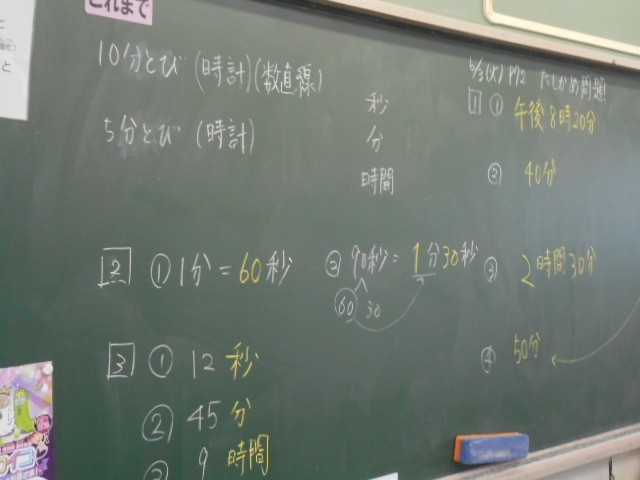 これまで
10分とび (時計)(数直線)
5分とび (時計)
秒
分
時間
6/3(火) P12 たしかめ問題
1 ① 午後8時20分
② 40分
③ 2時間30分
④ 50分
2 ① 1分=60秒
② 90秒=1分30秒
60 30
3 ① 12秒
② 45分
③ 9時間